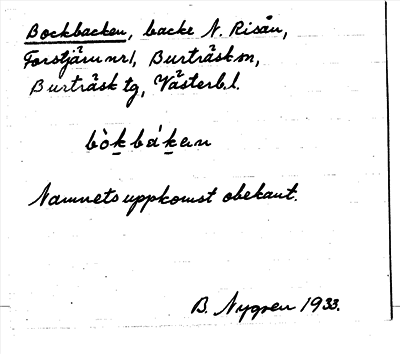 Bockbacken, backe N. Risån,
Forstjärn nr 1, Burträsk sn,
Burträsk tg, Västerb. l.
bòkbákan
Namnets uppkomst obekant.
B. Nygren 1933.